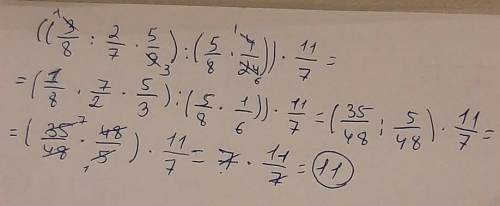 ((3/8 : 2/7 · 5/9) : (5/8 · 4/24)) · 11/7 =
= (1/8 · 7/2 · 5/3) : (5/8 · 1/6)) · 11/7 = (35/48 : 5/48) · 11/7 =
= (35/48 · 48/5) · 11/7 = 7 · 11/7 = 11